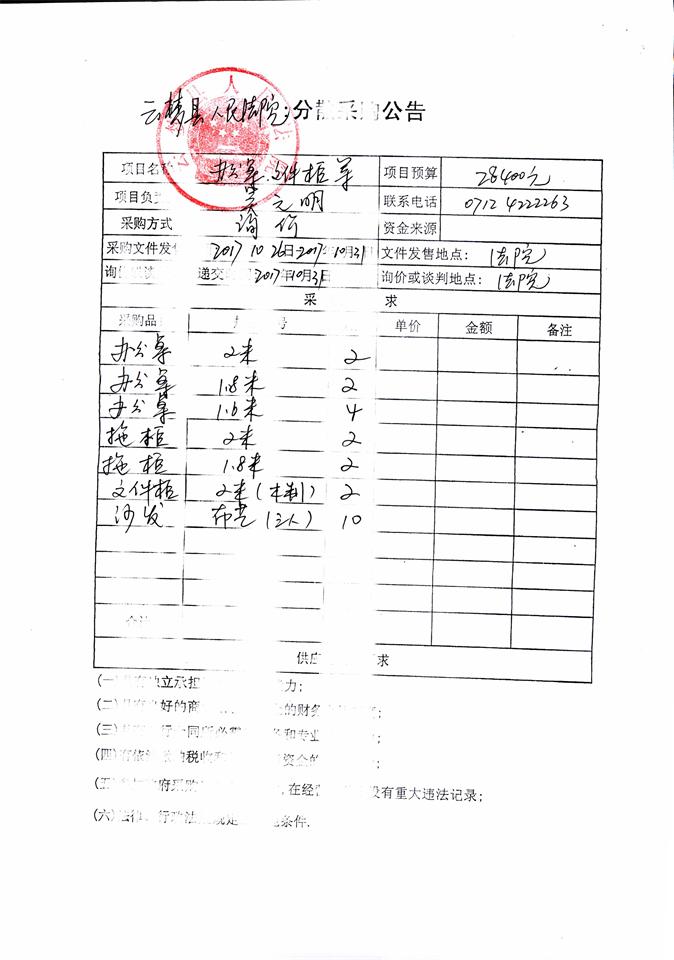 云梦县人民法院分散采购公告
项目名称 办公桌、文件柜等 项目预算 28400元
项目负 吴元明 联系电话 0712 4222263
采购方式 询价 资金来源
采购文件发 2017 10 26日-2017年10月31 文件发售地点: 法院
询 递交 2017年10月31日 询价或谈判地点: 法院
采 求
采购品 号 单价 金额 备注
办公桌 2米 2
办公桌 1.8米 2
办公桌 1.6米 4
拖柜 2米 2
拖柜 1.8米 2
文件柜 2米(木制) 2
沙发 布艺(三人) 10
合计
供应 求
(一) 独立承担 力;
(二) 好的商 的财务 ;
(三) 行合同所必需 和专业 ;
(四)有依 纳税收 资金的 ;
(五) 政府采购 ,在经营 没有重大违法记录;
(六)法律、行政法规 条件.